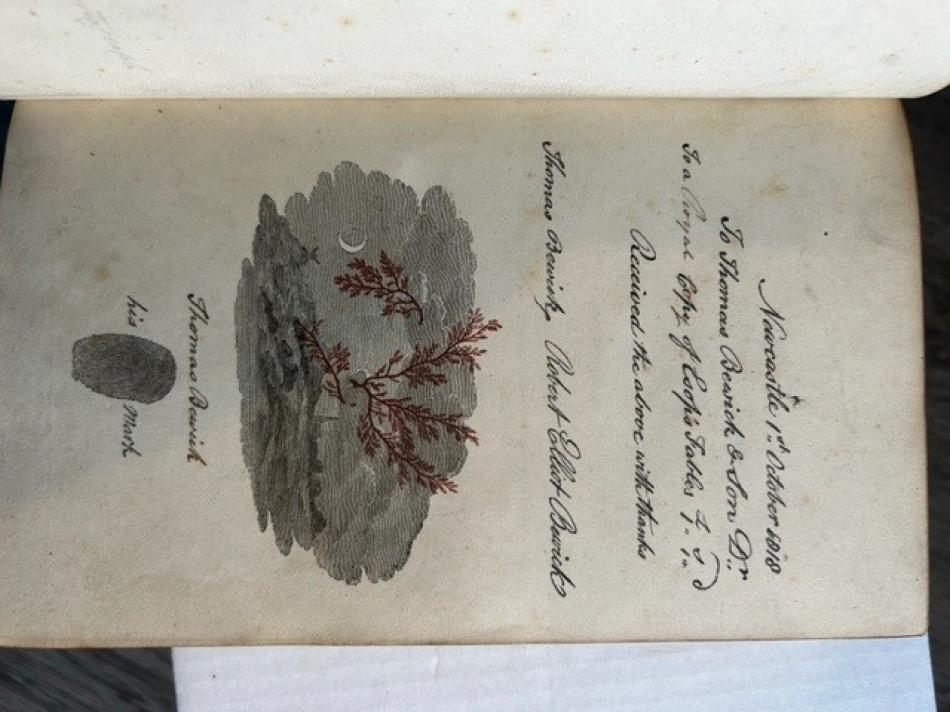 Newcastle, 1st October 1818
To Thomas Bewick & Son Dr
To a Royal Copy of Esop's Fables £ s d
Received the above with thanks
Thomas Bewick Robert Elliot Bewick
Thomas Bewick
his mark